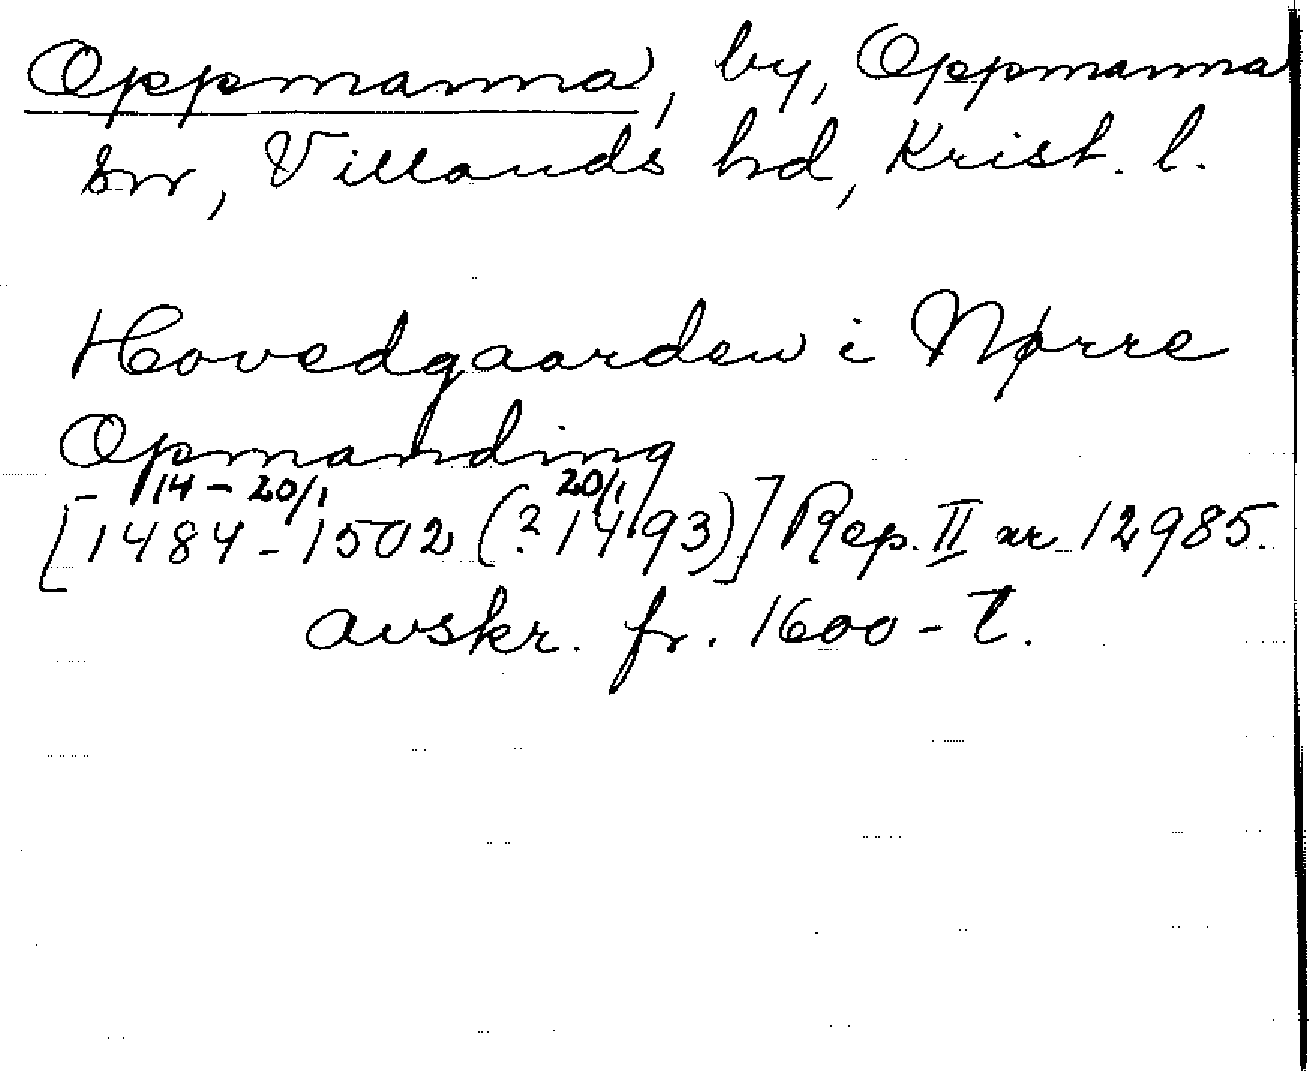 Oppmanna, by, Oppmanna
sn, Villands hd, Krist. l.
Hovedgaarden i Nørre
Opmanding
- 14 - 20/1 20/1
[1484 - 1502 (? 1493)] Rep. II nr 12985.
avskr. fr. 1600-t.